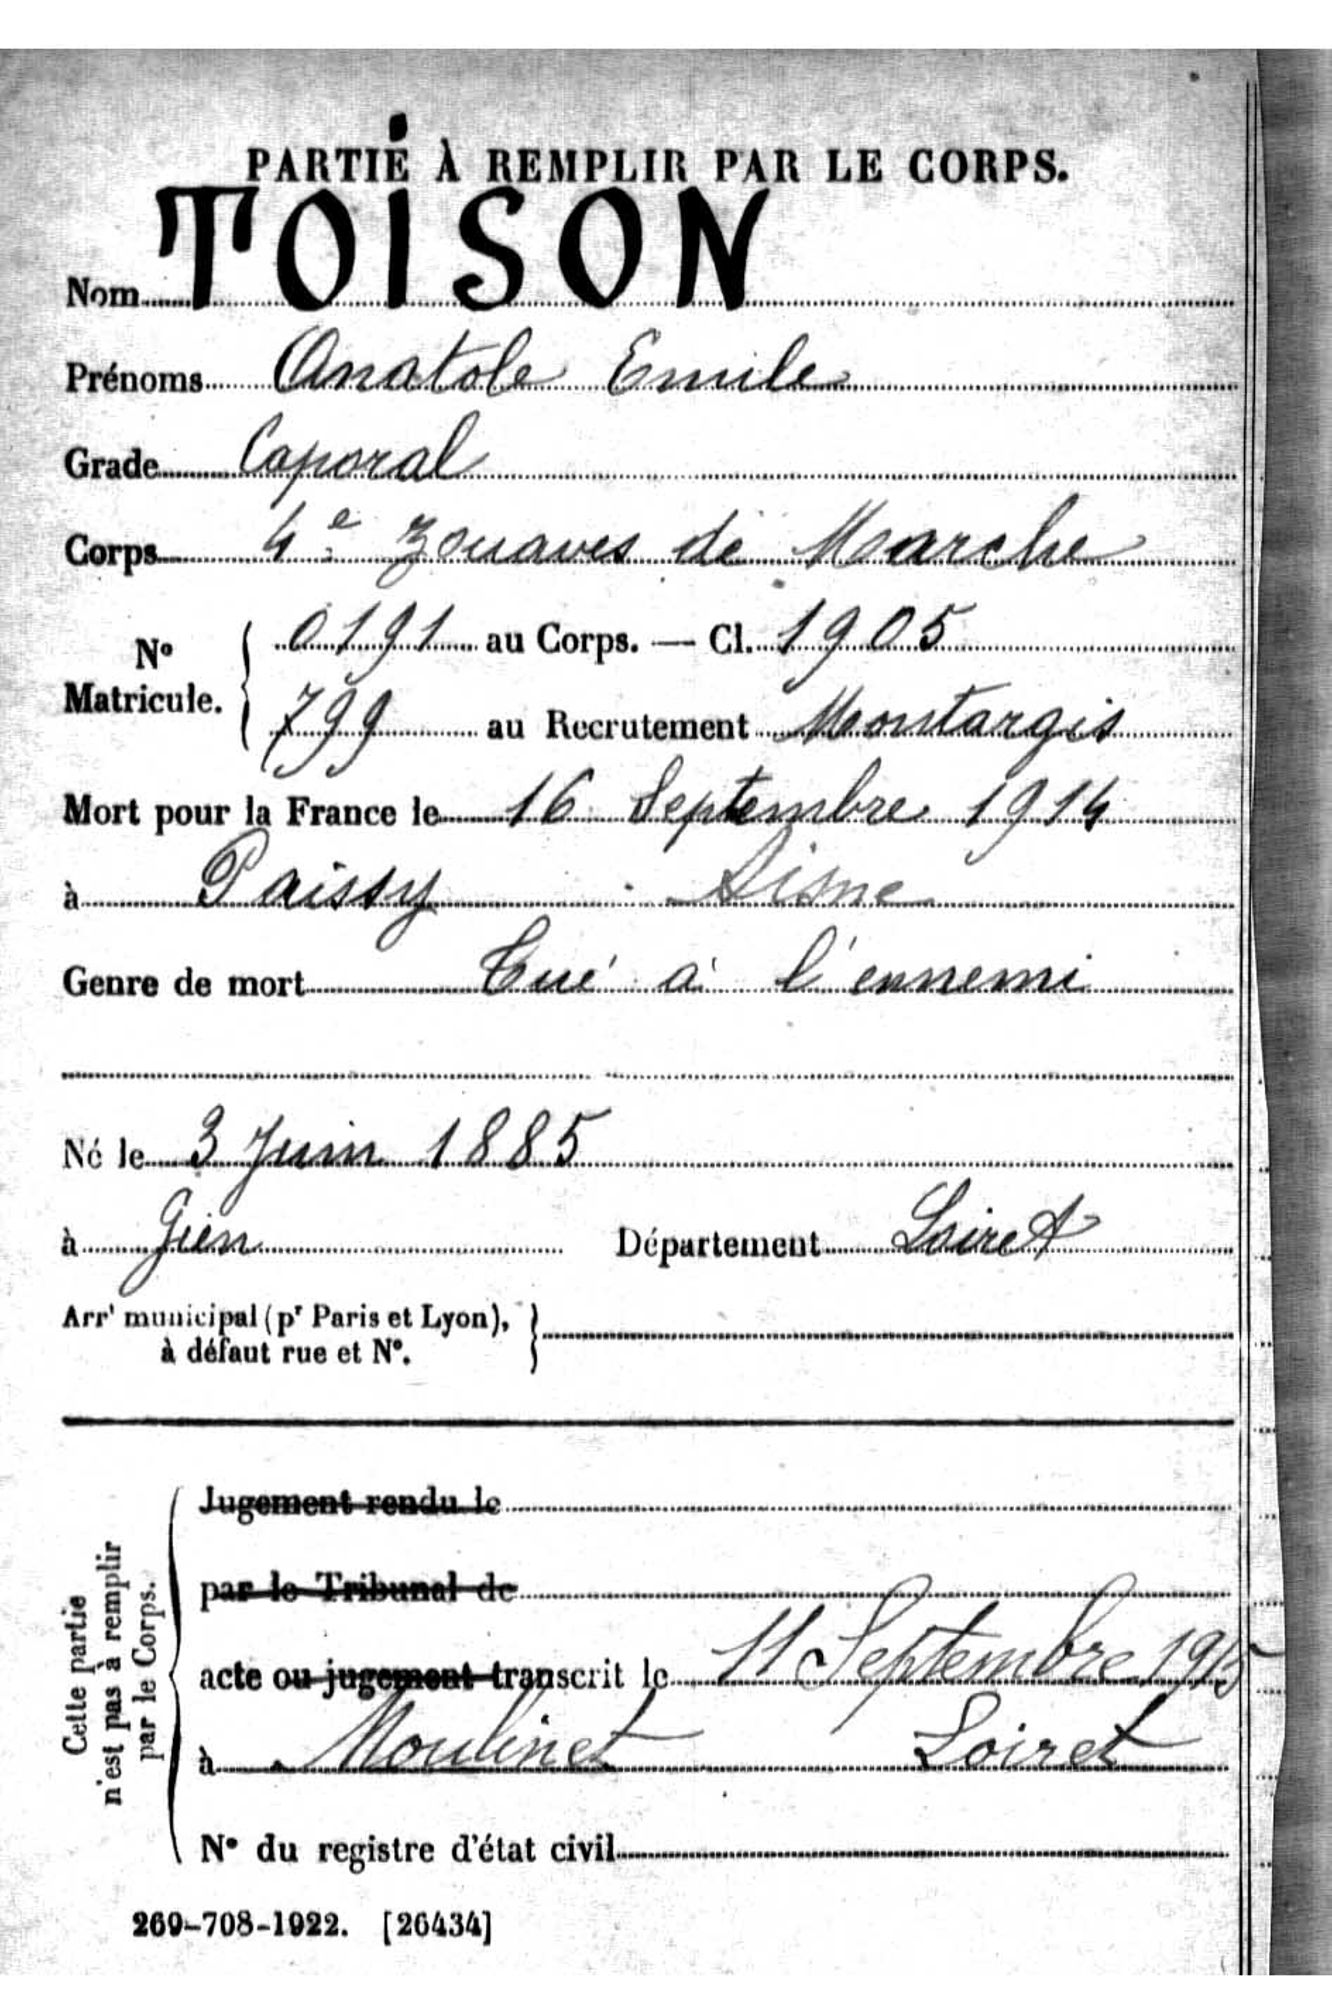 PARTIE À REMPLIR PAR LE CORPS.
Nom TOISON
Prénoms Anatole Emile
Grade Caporal
Corps 4e Zouaves de Marche
No Matricule. { 0191 au Corps. — Cl. 1905
799 au Recrutement Montargis
Mort pour la France le 16 Septembre 1914
à Paissy Aisne
Genre de mort Tué à l'ennemi
Né le 3 Juin 1885
à Gien Département Loiret
Arrt municipal (pr Paris et Lyon), }
à défaut rue et No.
Cette partie
n'est pas à remplir
par le Corps.
Jugement rendu le
par le Tribunal de
acte ou jugement transcrit le 11 Septembre 1915
à Moulinet Loiret
No du registre d'état civil
269-708-1922. [26434]